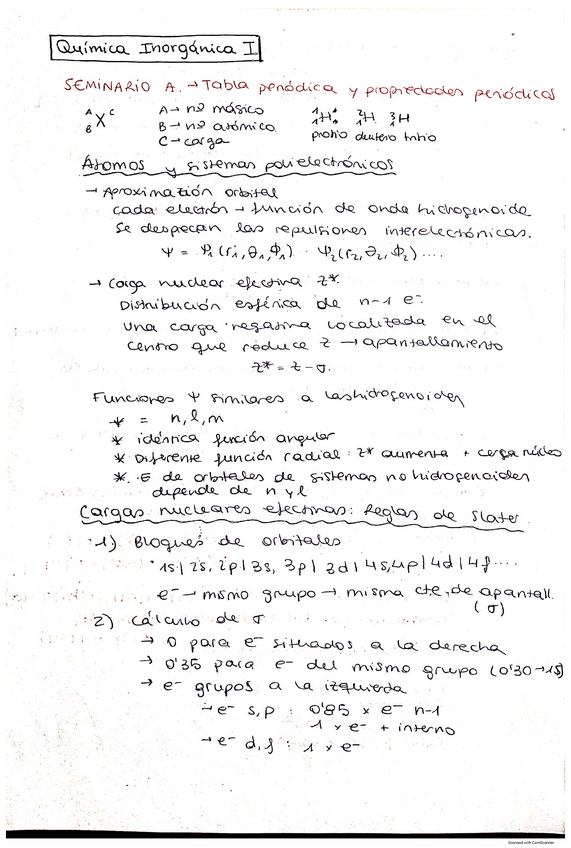 Química Inorgánica I
SEMINARIO A. → Tabla periódica y propiedades periódicas
A X C B A → nº másico ¹₁H⁺ ²₁H ³₁H
B → nº atómico protio deuterio tritio
C → carga
Átomos y sistemas polielectrónicos
→ Aproximación orbital
cada electrón → función de onda hidrogenoide
Se desprecian las repulsiones interelectrónicas.
Ψ = Ψ₁ (r₁, θ₁, ϕ₁) · Ψ₂ (r₂, θ₂, ϕ₂) ....
→ Carga nuclear efectiva z*.
Distribución esférica de n-1 e-.
Una carga negativa localizada en el
centro que reduce z → apantallamiento
z* = z - σ.
Funciones Ψ similares a las hidrogenoides
Ψ = n, l, m
* idéntica función angular
* Diferente función radial: z* aumenta + cerca núcleo
*. E de orbitales de sistemas no hidrogenoides
depende de n y l
Cargas nucleares efectivas: Reglas de Slater.
1) Bloques de orbitales
1s | 2s, 2p | 3s, 3p | 3d | 4s, 4p | 4d | 4f ....
e- → mismo grupo → misma cte. de apantall.
(σ)
2) Cálculo de σ
→ 0 para e- situados a la derecha
→ 0'35 para e- del mismo grupo (0'30 → 1s)
→ e- grupos a la izquierda
→ e- s, p : 0'85 x e- n-1
1 x e- + interno
→ e- d, f : 1 x e-
Scanned with CamScanner